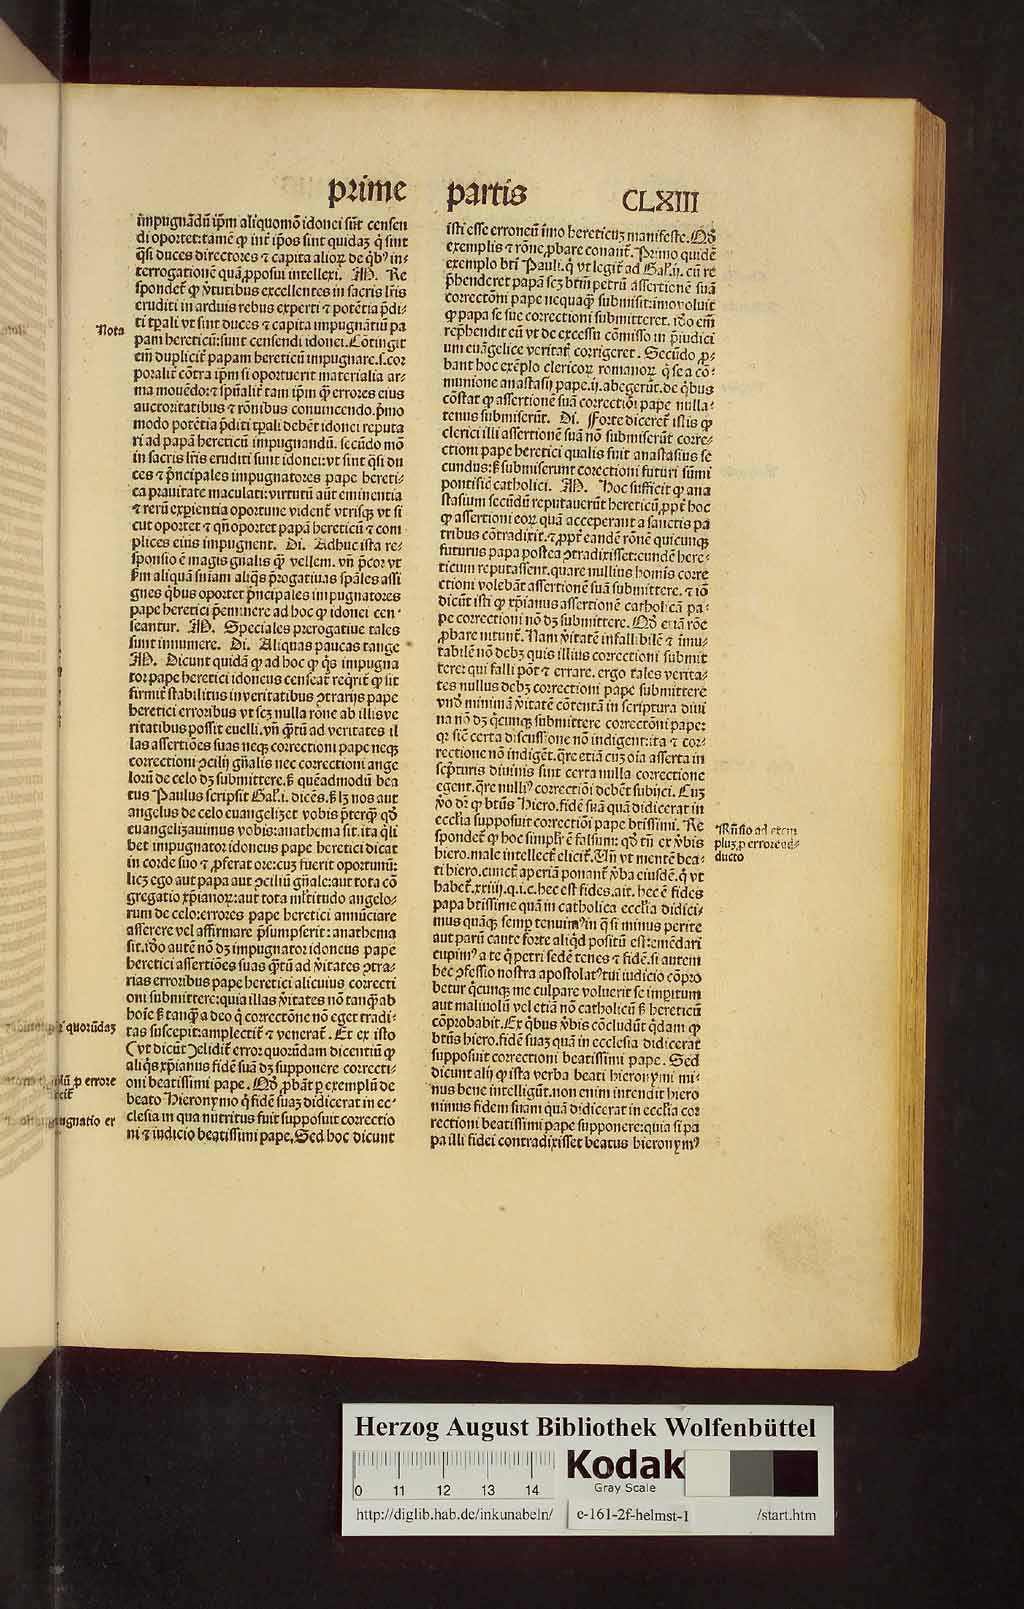 prime partis CLXIII
impugnādū ip̄m aliquomō idonei sūt censen
di oportet: tamē ꝙ int̄ ip̄os sint quidaꝫ q̄ sint
q̄si duces directores ⁊ capita alioꝝ de q̄bꝰ in⸗
terrogationē quā ꝓposui intellexi. M. Re
spondet̄ ꝙ v̓tutibus excellentes in sacris l̄ris
eruditi in arduis rebus experti ⁊ potētia p̄di⸗
ti tp̄ali vt sint duces ⁊ capita impugnātiū pa
pam hereticū: sunt censendi idonei. Cōtingit
em̄ duplicit̄ papam hereticū impugnare. s. cor
poralit̄ cōtra ip̄m si oportuerit materialia ar⸗
ma mouēdo: ⁊ sp̄ualit̄ tam ip̄m ꝙ̄ errores eius
auctoritatibus ⁊ rōnibus conuincendo. p̄mo
modo potētia p̄diti tp̄ali debēt idonei reputa
ri ad papā hereticū impugnandū. secūdo mō
in sacris l̄ris eruditi sunt idonei: vt sint q̄si du
ces ⁊ p̄ncipales impugnatores pape hereti⸗
ca prauitate maculati: virtutū aūt eminentia
⁊ rerū exp̄ientia oportune vident̄ vtrisqꝫ vt si
cut oportet ⁊ qn̄ oportet papā hereticū ⁊ com
plices eius impugnent. Di. Adhuc ista re⸗
sponsio ē magis gn̄alis ꝙ̄ vellem. vn̄ p̄cor vt
ẜm aliquā sn̄iam aliq̄s p̄rogatiuas sp̄ales assi
gnes q̄bus oportet p̄ncipales impugnatores
pape heretici p̄eminere ad hoc ꝙ idonei cen⸗
seantur. M. Speciales prerogatiue tales
sunt innumere. Di. Aliquas paucas tange
M. Dicunt quidā ꝙ ad hoc ꝙ q̄s impugna
tor pape heretici idoneus censeat̄ req̄rit̄ ꝙ sit
firmit̄ stabilitus in veritatibus ↄtrarijs pape
heretici erroribus vt scꝫ nulla rōne ab illis ve
ritatibus possit euelli. vn̄ q̄tū ad veritates il
las assertiōes suas neqꝫ correctioni pape neqꝫ
correctioni ↄcilij gn̄alis nec correctioni ange
lorū de celo dꝫ submittere. ẜ quēadmodū bea
tus Paulus scripsit Gal̓. i. dicēs. ẜ lꝫ nos aut
angelus de celo euangelizet vobis p̄terq̄ꝫ qd̄
euangelizauimus vobis: anathema sit. ita q̄li
bet impugnator idoneus pape heretici dicat
in corde suo ⁊ ꝓferat ore: cuꝫ fuerit oportunū:
licꝫ ego aut papa aut ↄciliū gn̄ale: aut tota cō
gregatio xp̄ianoꝝ: aut tota ml̓titudo angelo⸗
rum de celo: errores pape heretici annūciare
asserere vel affirmare p̄sumpserit: anathema
sit. iđo autē nō dꝫ impugnator idoneus pape
heretici assertiōes suas q̄tū ad v̓itates ↄtra⸗
rias erroribus pape heretici alicuius correcti
oni submittere: quia illas v̓itates nō tanq̄ꝫ ab
hoīe ẜ tanq̄ꝫ a deo q̄ correctōne nō eget tradi⸗
tas suscepit: amplectit̄ ⁊ venerat̄. Et ex isto
(vt dicūt) elidit̄ error quorūdam dicentiū ꝙ
aliq̄s xp̄ianus fidē suā dꝫ supponere correcti⸗
oni beatissimi pape. Qd̄ ꝓbāt p exemplū de
beato Hieronymo q̄ fidē suaꝫ didicerat in ec⸗
clesia in qua nutritus fuit supposuit correctio
ni ⁊ iudicio beatissimi pape. Sed hoc dicunt
isti esse erroneū imo hereticuꝫ manifeste. Qd̄
exemplis ⁊ rōne ꝓbare conant̄. Primo quidē
exemplo bt̄i Pauli. q̄ vt legit̄ ad Gal̓. ij. cū re
p̄henderet papā scꝫ bt̄m petrū assertionē suā
correctōni pape nequaq̄ꝫ submisit: imo voluit
ꝙ papa se sue correctioni submitteret. iđo em̄
rep̄hendit eū vt de excessu cōmisso in p̄iudici
um euāgelice veritat̄ corrigeret. Secūdo ꝓ⸗
bant hoc exēplo clericoꝝ romanoꝝ q̄ se a cō⸗
munione anastasij pape. ij. abegerūt. de q̄bus
cōstat ꝙ assertionē suā correctiōi pape nulla⸗
tenus submiserūt. Di. Forte diceret̄ istis ꝙ
clerici illi assertionē suā nō submiserūt corre⸗
ctioni pape heretici qualis fuit anastasius se
cundus: ẜ submiserunt corectioni futuri sūmi
pontificē catholici. M. Hoc sufficit ꝙ ana
stasium secūdū reputauerūt hereticū, ꝓpt̄ hoc
ꝙ assertioni eoꝝ quā acceperant a sanctis pa
tribus cōtradixit. ⁊ ꝓpt̄ eandē rōnē quicunqꝫ
futurus papa postea ↄtradixisset: eundē here⸗
ticum reputassent. quare nullius homīs corre
ctioni volebāt assertionē suā submittere. ⁊ iō
dicūt isti ꝙ xp̄ianus assertionē catholicā pa⸗
pe correctioni nō dꝫ submittere. Qd̄ etiā rōe
ꝓbare nitunt̄. Nam v̓itatē infallibilē ⁊ īmu⸗
tabilē nō debꝫ quis illius correctioni submit
tere: qui falli pōt ⁊ errare. ergo tales verita⸗
tes nullus debꝫ correctioni pape submittere
vnđ minimā v̓itatē cōtentā in scriptura diui
na nō dꝫ q̄cunqꝫ submittere correctōni pape:
qꝛ sic̄ certa discussione nō indigent: ita ⁊ cor⸗
rectione nō indigēt. q̄re etiā cuꝫ oīa asserta in
sc̄pturis diuinis sint certa nulla correctione
egent. q̄re nulliꝰ correctiōi debēt subijci. Cuꝫ
v̓o dr̄ ꝙ btūs Hiero. fidē suā quā didicerat in
eccl̓ia supposuit correctiōi pape bt̄issimi. Re
spondet̄ ꝙ hoc simpl̓r ē falsum: qd̄ tn̄ ex v̓bis
hiero. male intellect̄ elicit̄. Vn̄ vt mentē bea⸗
ti hiero. cunct̄ aperiā ponant̄ v̓ba eiusdē. q̄ vt
habet̄. xxiiij. q. i. c. hec est fides. ait. hec ē fides
papa bt̄issime quā in catholica eccl̓ia didici⸗
mus quāqꝫ semꝑ tenuimꝰ in q̄ si minus perite
aut parū caute forte aliq̄d positū est: emēdari
cupimꝰ a te q̄ petri sedē tenes ⁊ fidē. si autem
hec ↄfessio nostra apostolatꝰ tui iudicio cōpro
betur q̄cunqꝫ me culpare voluerit se imꝑitum
aut maliuolū vel etiā nō catholicū ẜ hereticū
cōprobabit. Ex q̄bus v̓bis cōcludūt q̄dam ꝙ
btūs hiero. fidē suaꝫ quā in ecclesia didicerat
supposuit correctioni beatissimi pape. Sed
dicunt alij ꝙ ista verba beati hieronymi mi⸗
nus bene intelligūt. non enim intendit hiero
nimus fidem suam quā didicerat in eccl̓ia cor
rectioni beatissimi pape supponere: quia si pa
pa illi fidei contradixisset beatus hieronymꝰ
Nota
quorūdaꝫ
plū ꝓ errore
ugnatio er
Rn̄sio ad exem
pluꝫ ꝓ errore ad⸗
ducto
Herzog August Bibliothek Wolfenbüttel
0 11 12 13 14
Kodak
Gray Scale
http://diglib.hab.de/inkunabeln/ e-161-2f-helmst-1 /start.htm